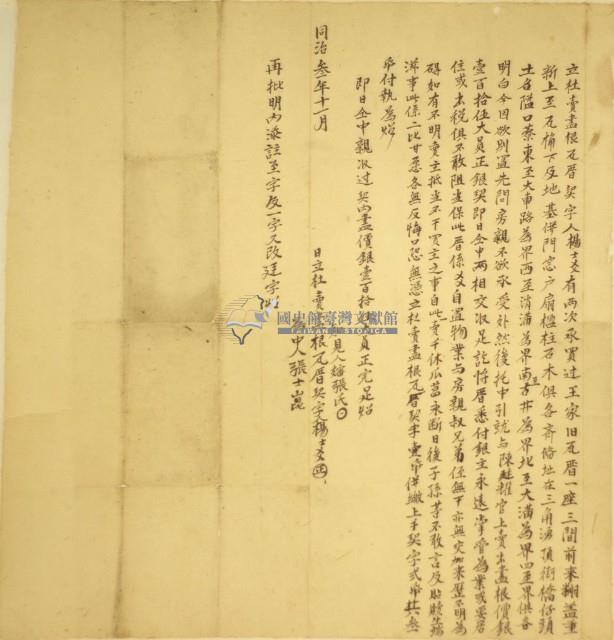 立杜賣盡根瓦厝契字人楊士爻有兩次承買過王家旧瓦厝一座三間前來翻蓋重
新上至瓦桷下及地基併門窓户扇楹柱石木俱各齊俻址在三角湧頂街橋仔頭
土名隘口藔東至大車路為界西至浩溝為界南至古井為界北至大溝為界四至界俱各
明白今因欲別置先問房親不欲承受外然後托中引就与陳 官上賣出盡根價銀
壹百拾伍大員正銀契即日仝中兩相交收足訖將厝悉付銀主永遠掌管為業或要居
住或出稅俱不敢阻当保此厝係爻自置物業与房親叔兄弟侄無干亦無交加來歷不明為
碍如有不明賣主抵当不干買主之事自此一賣千休瓜葛永断日後子孫等不敢言及貼贖生端
滋事此係二比甘愿各無反悔口恐無憑立杜賣盡根瓦厝契字壹帋併繳上手契字弍帋共叁
帋付執為炤
即日仝中親收过契内盡價銀壹百拾 員正完足炤
同治叁年十一月
見人 張氏
日立杜賣盡根瓦厝契字人楊士爻
為中人張士崑
再批明内添註至字及一字又改廷字
國史館臺灣文獻館
TAIWAN HISTORICA